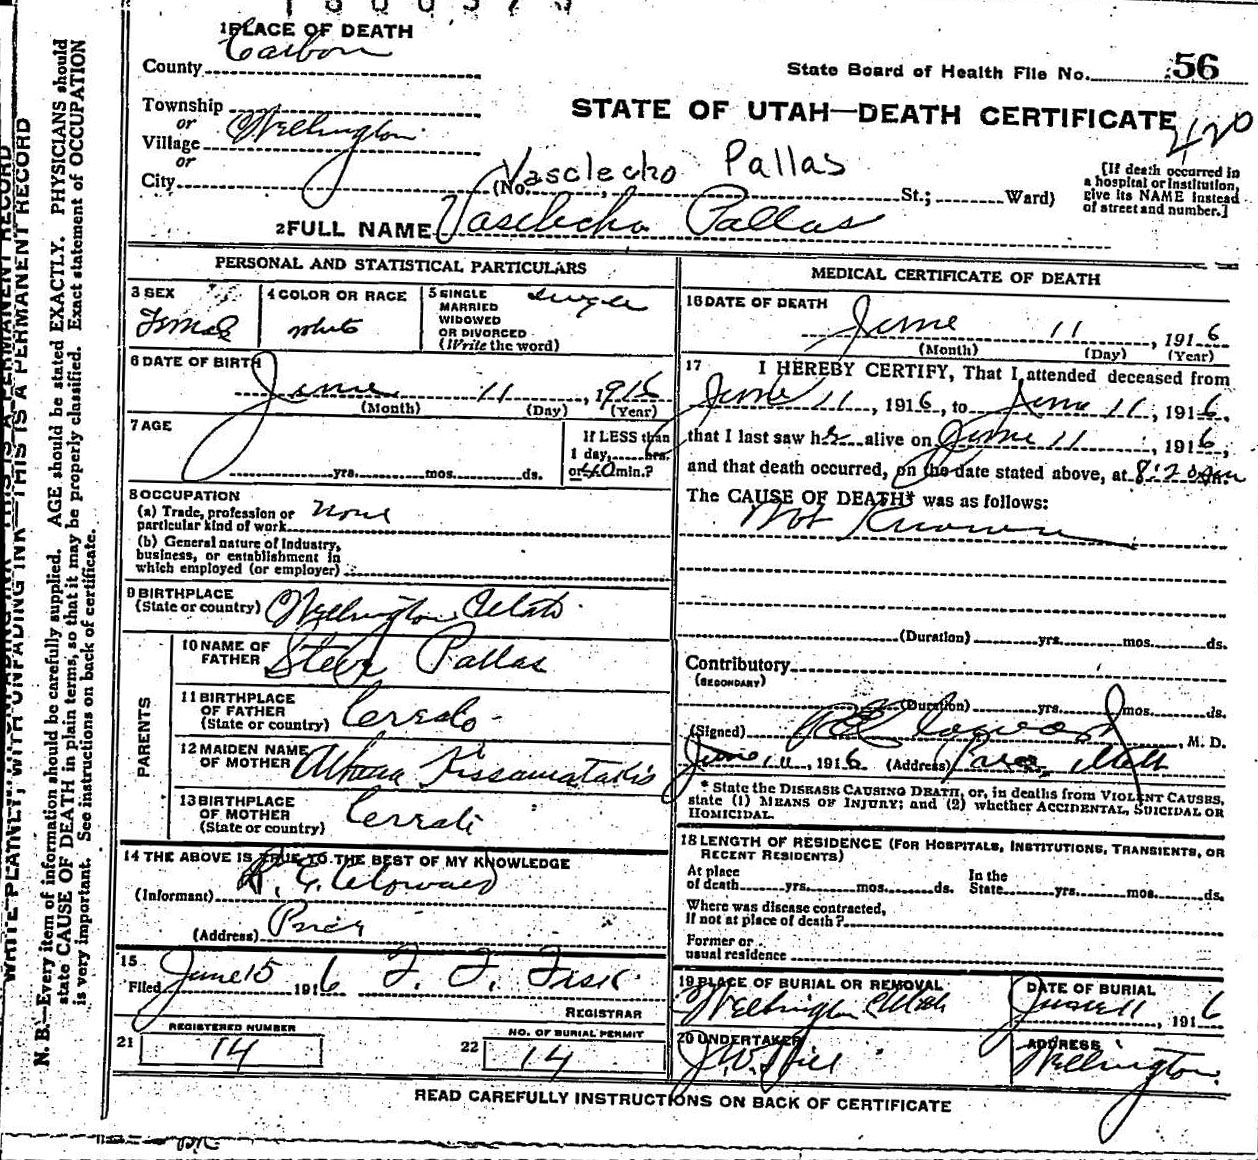 1 PLACE OF DEATH
County Carbon
State Board of Health File No. 56
STATE OF UTAH—DEATH CERTIFICATE
Township
or
Village Wellington
or
City (No. St.; Ward)
Vasclecho Pallas
[If death occurred in
a hospital or institution,
give its NAME instead
of street and number.]
2 FULL NAME Vasclecho Pallas
PERSONAL AND STATISTICAL PARTICULARS
3 SEX Female
4 COLOR OR RACE white
5 SINGLE
MARRIED
WIDOWED
OR DIVORCED
(Write the word)
single
6 DATE OF BIRTH
June 11, 1916
(Month) (Day) (Year)
7 AGE
yrs. mos. ds.
If LESS than
1 day, hrs.
or 40 min.?
8 OCCUPATION
(a) Trade, profession or
particular kind of work None
(b) General nature of Industry,
business, or establishment in
which employed (or employer)
9 BIRTHPLACE
(State or country) Wellington Utah
PARENTS
10 NAME OF
FATHER Steve Pallas
11 BIRTHPLACE
OF FATHER
(State or country)
12 MAIDEN NAME
OF MOTHER
13 BIRTHPLACE
OF MOTHER
(State or country)
14 THE ABOVE IS TRUE TO THE BEST OF MY KNOWLEDGE
(Informant)
(Address) Price
15
Filed June 15 1916
REGISTRAR
REGISTERED NUMBER
21 14
NO. OF BURIAL PERMIT
22 14
MEDICAL CERTIFICATE OF DEATH
16 DATE OF DEATH
June 11, 1916
(Month) (Day) (Year)
17 I HEREBY CERTIFY, That I attended deceased from
June 11, 1916, to June 11, 1916,
that I last saw her alive on June 11, 1916,
and that death occurred, on the date stated above, at 8:20 am.
The CAUSE OF DEATH* was as follows:
Not Known
(Duration) yrs. mos. ds.
Contributory
(SECONDARY)
(Duration) yrs. mos. ds.
(Signed) M. D.
June 11, 1916 (Address) Price, Utah
* State the DISEASE CAUSING DEATH, or, in deaths from VIOLENT CAUSES,
state (1) MEANS OF INJURY; and (2) whether ACCIDENTAL, SUICIDAL OR
HOMICIDAL.
18 LENGTH OF RESIDENCE (FOR HOSPITALS, INSTITUTIONS, TRANSIENTS, OR
RECENT RESIDENTS)
At place
of death yrs. mos. ds.
In the
State yrs. mos. ds.
Where was disease contracted,
If not at place of death?
Former or
usual residence
19 PLACE OF BURIAL OR REMOVAL
Wellington Utah
DATE OF BURIAL
June 11, 1916
20 UNDERTAKER
J. W. Hill
ADDRESS
Wellington
READ CAREFULLY INSTRUCTIONS ON BACK OF CERTIFICATE
WRITE PLAINLY, WITH UNFADING INK—THIS IS A PERMANENT RECORD
N. B.—Every item of information should be carefully supplied. AGE should be stated EXACTLY. PHYSICIANS should
state CAUSE OF DEATH in plain terms, so that it may be properly classified. Exact statement of OCCUPATION
is very important. See instructions on back of certificate.